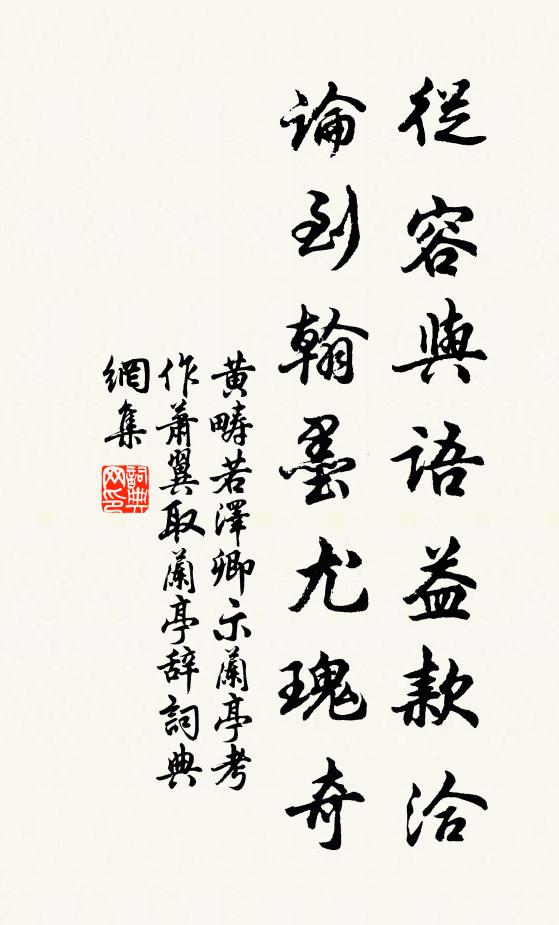 從容與語益款洽
論到翰墨尤瑰奇
黃疇若澤卿示蘭亭考
作蕭翼取蘭亭辞詞典
網集